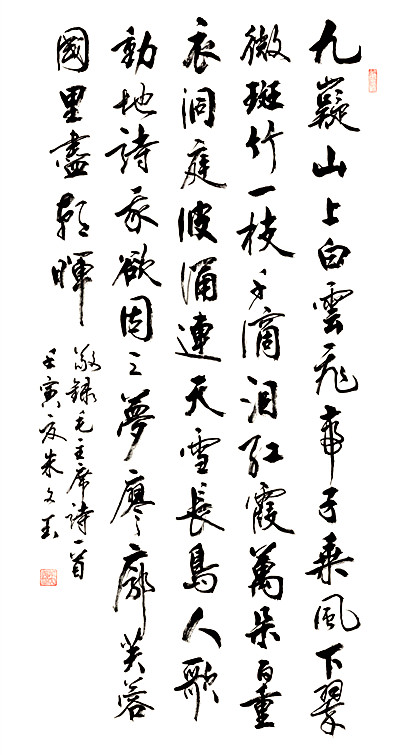 九嶷山上白雲飛帝子乘風下翠
微斑竹一枝千滴泪紅霞萬朵百重
衣洞庭波涌連天雪長島人歌
動地詩我欲因之夢廖廓芙蓉
國里盡朝暉
敬録毛主席詩一首
壬寅夏朱文